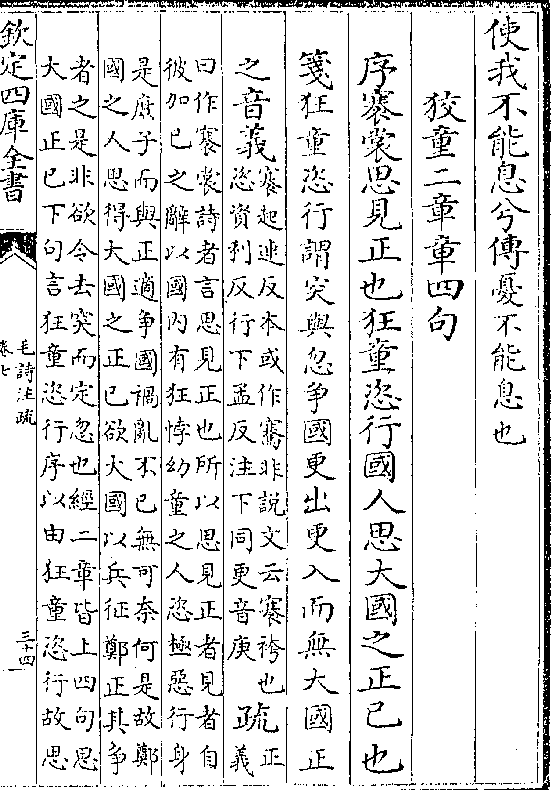 使我不能息兮傳憂不能息也
狡童二章章四句
序褰裳思見正也狂童恣行國人思大國之正己也
箋狂童恣行謂突與忽爭國更出更入而無大國正
之音義褰起連反本或作騫非說文云褰袴也
恣資利反行下孟反注下同更音庚
疏正
義
曰作褰裳詩者言思見正也所以思見正者見者自
彼加己之辭以國內有狂悖幼童之人恣極惡行身
是庶子而與正適爭國禍亂不已無可奈何是故鄭
國之人思得大國之正己欲大國以兵征鄭正其爭
者之是非欲令去突而定忽也經二章皆上四句思
大國正己下句言狂童恣行序以由狂童恣行故思
欽定四庫全書
毛詩注疏
卷七
三十四